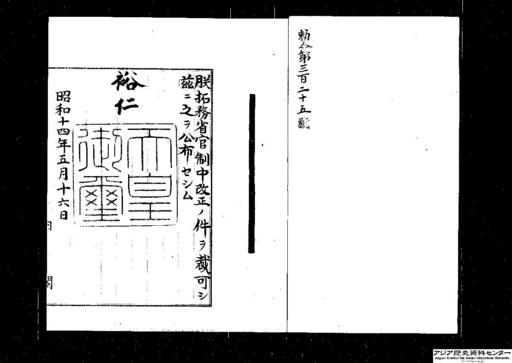 勅令第三百二十五號
朕拓務省官制中改正ノ件ヲ裁可シ
茲ニ之ヲ公布セシム
裕仁
天皇
御璽
昭和十四年五月十六日
内閣
アジア歴史資料センター
Japan Center for Asian Historical Records